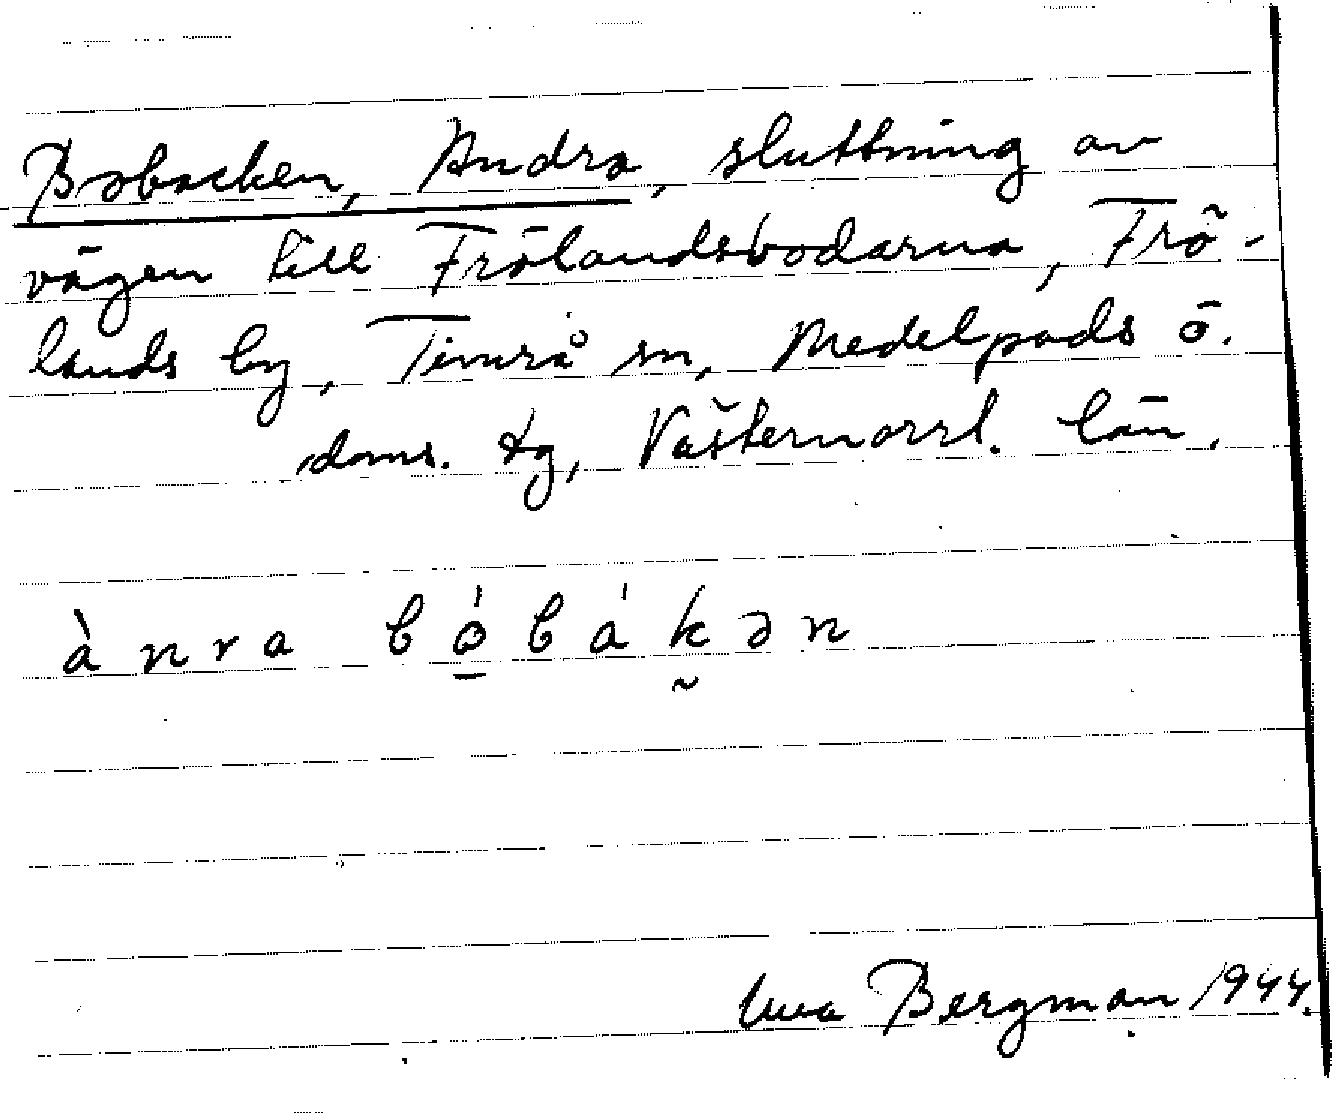 Bobacken, Andra, sluttning av
vägen till Frölandsbodarna, Frö-
lands by, Timrå sn, Medelpads ö.
doms. tg, Västernorrl. län.
ànra bó̠bák̰ən
Bergman 1944.